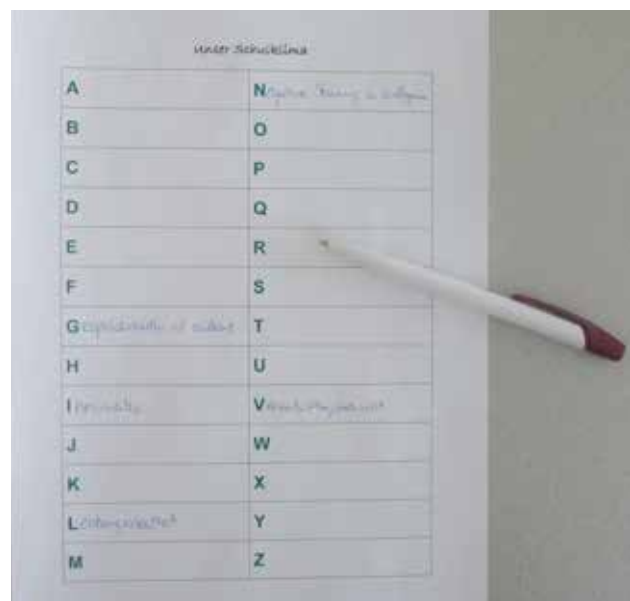 Unser Schulklima
A
N
B
O
C
P
D
Q
E
R
F
S
G
T
H
U
I
V
J
W
K
X
L
Y
M
Z